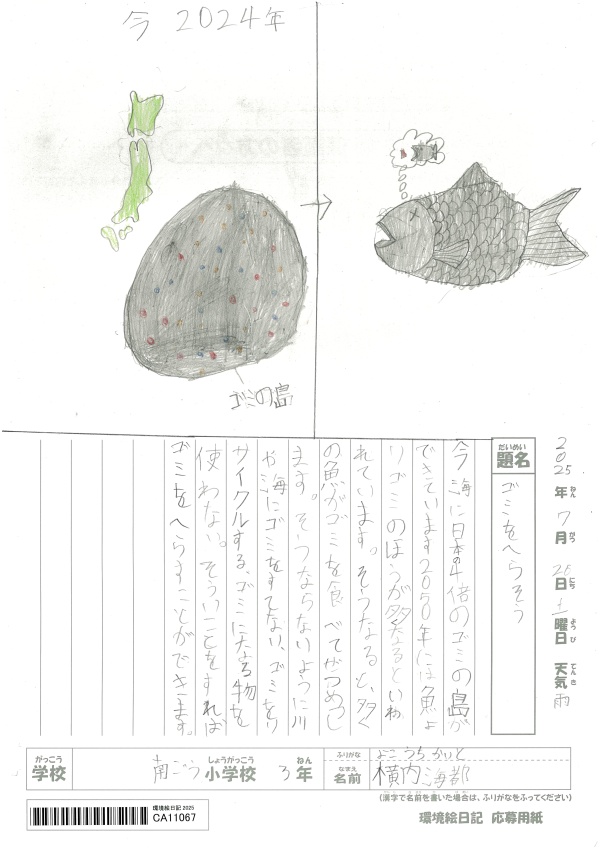 今 2024年
ゴミの島
2025年ねん 7月がつ 26日にち 土曜日ようび 天気てんき 雨
だいめい
題名
ゴミをへらそう
今海に日本の4倍のゴミの島が
できています2050年には魚よ
りゴミのほうが多くなるといわ
れています。そうなると、多く
の魚がゴミを食べてぜつめつし
ます。そうならないように川
や海にゴミをすてない、ゴミをリ
サイクルする、ゴミになる物を
使わない。そういことをすれば
ゴミをへらすことができます。
がっこう
学校
南ごう
しょうがっこう
小学校
3
ねん
年
ふりがな
よこうちかいと
なまえ
名前
横内海都
(漢字で名前を書いた場合は、ふりがなをふってください)
環境絵日記2025
CA11067
環境絵日記 応募用紙